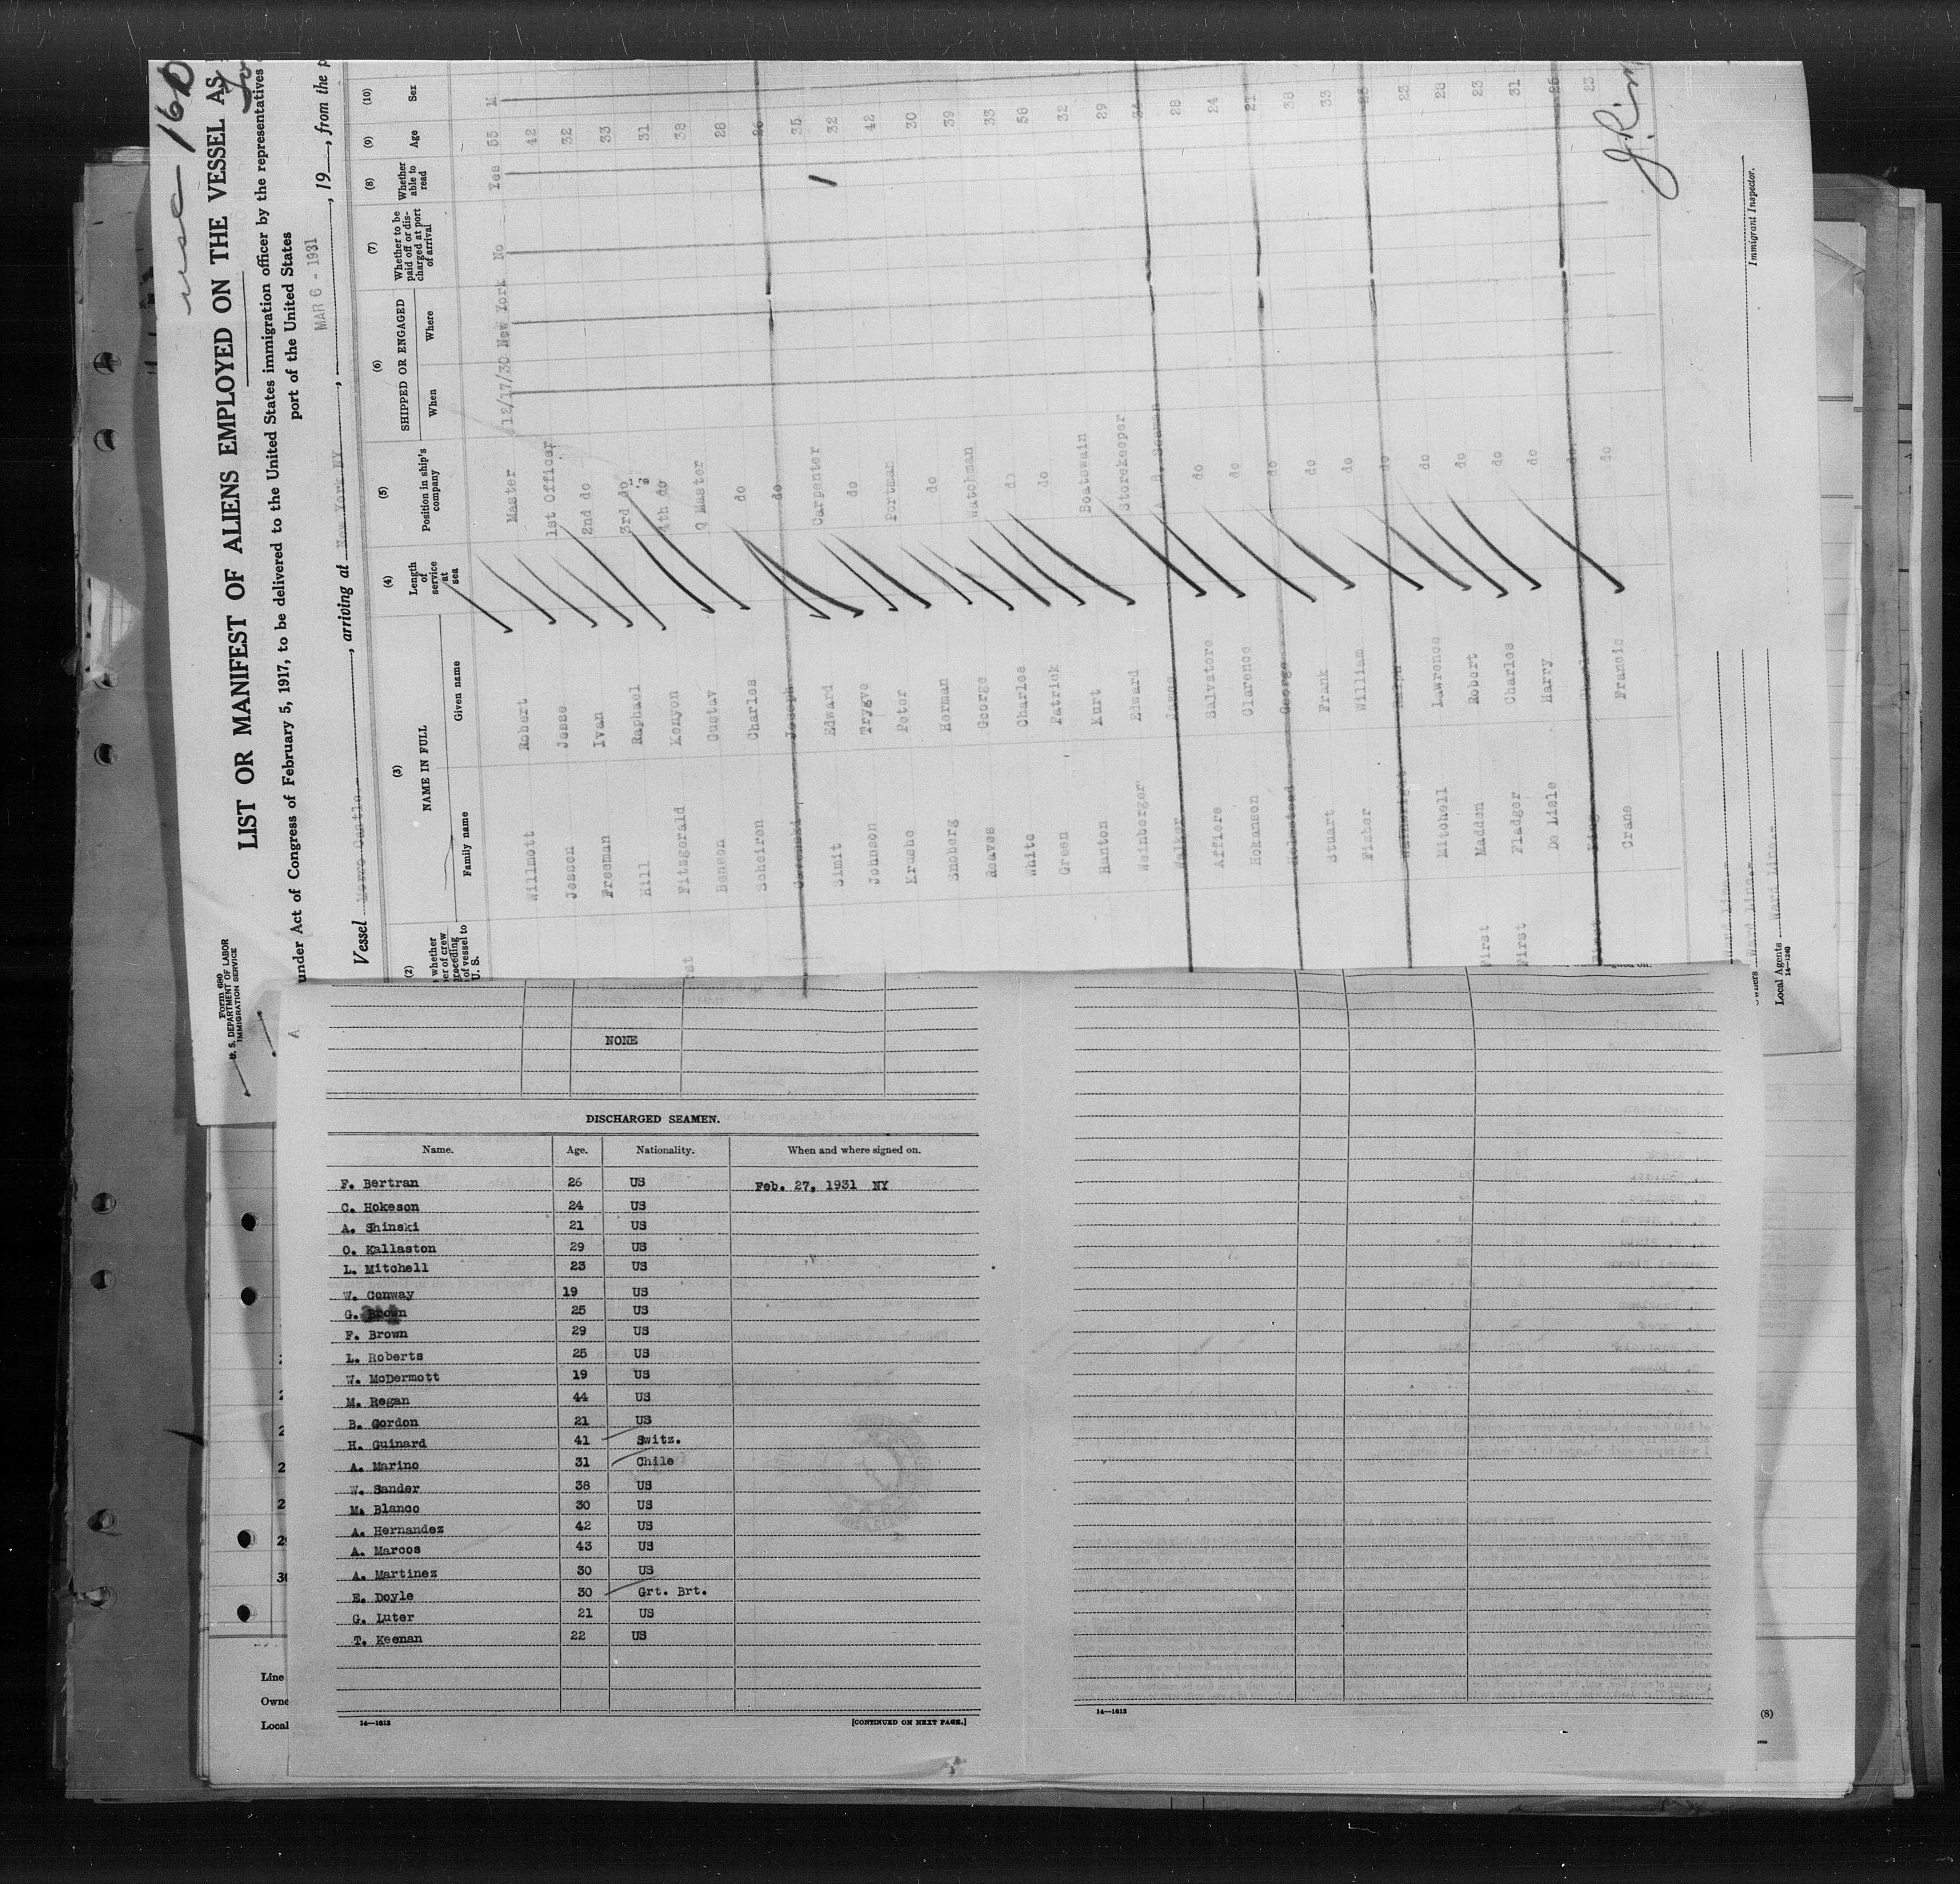 16
LIST OR MANIFEST OF ALIENS EMPLOYED ON THE VESSEL AS
under Act of Congress of February 5, 1917, to be delivered to the United States immigration officer by the representatives
port of the United States
Form 680
U. S. DEPARTMENT OF LABOR
IMMIGRATION SERVICE
MAR 6 - 1931
Vessel Morro Castle, arriving at New York NY, 19, from the p
(2) (3) (4) (5) (6) (7) (8) (9) (10)
whether
er of crew
proceding
of vessel to
U. S.
NAME IN FULL
Family name Given name
Length of service at sea
Position in ship's company
SHIPPED OR ENGAGED
When Where
Whether to be paid off or discharged at port of arrival
Whether able to read
Age
Sex
Willmott Robert Master 12/17/30 New York No Yes 55 M
Jessen Jesse 1st Officer 42
Freeman Ivan 2nd do 32
Hill Raphael 3rd do 33
Fitzgerald Kenyon 4th do 31
Benson Gustav Q Master 38
Scheiren Charles do 28
Joseph do 26
Simit Edward Carpenter 35
Johnson Trygve do 32
Krushe Peter Portman 42
Snoberg Herman do 30
Reaves George Watchman 39
White Charles do 33
Green Patrick do 58
Hanton Kurt Boatswain 32
Weinberger Edward Storekeeper 29
Walker James A. B. Seaman 34
Affiere Salvatore do 28
Hokanson Clarence do 24
George do 21
Stuart Frank do 38
Fisher William do 33
Ralph do
Mitchell Lawrence do 23
First Madden Robert do 28
First Fladger Charles do 23
De Lisle Harry do 31
King Charles do 25
Crane Francis do 23
Immigrant Inspector.
Owners Ward Line
Local Agents Ward Line
14—1240
A
NONE
DISCHARGED SEAMEN.
Name. Age. Nationality. When and where signed on.
F. Bertran 26 US Feb. 27, 1931 NY
C. Hokeson 24 US
A. Shinski 21 US
O. Kallaston 29 US
L. Mitchell 23 US
W. Conway 19 US
G. Brown 25 US
F. Brown 29 US
L. Roberts 25 US
W. McDermott 19 US
M. Regan 44 US
B. Gordon 21 US
H. Guinard 41 Switz.
A. Marino 31 Chile
W. Sander 38 US
M. Blanco 30 US
A. Hernandez 42 US
A. Marcos 43 US
A. Martinez 30 US
E. Doyle 30 Grt. Brt.
G. Luter 21 US
T. Keenan 22 US
14—1613
[CONTINUED ON NEXT PAGE.]
14—1613
(8)
30
Line
Owne
Local